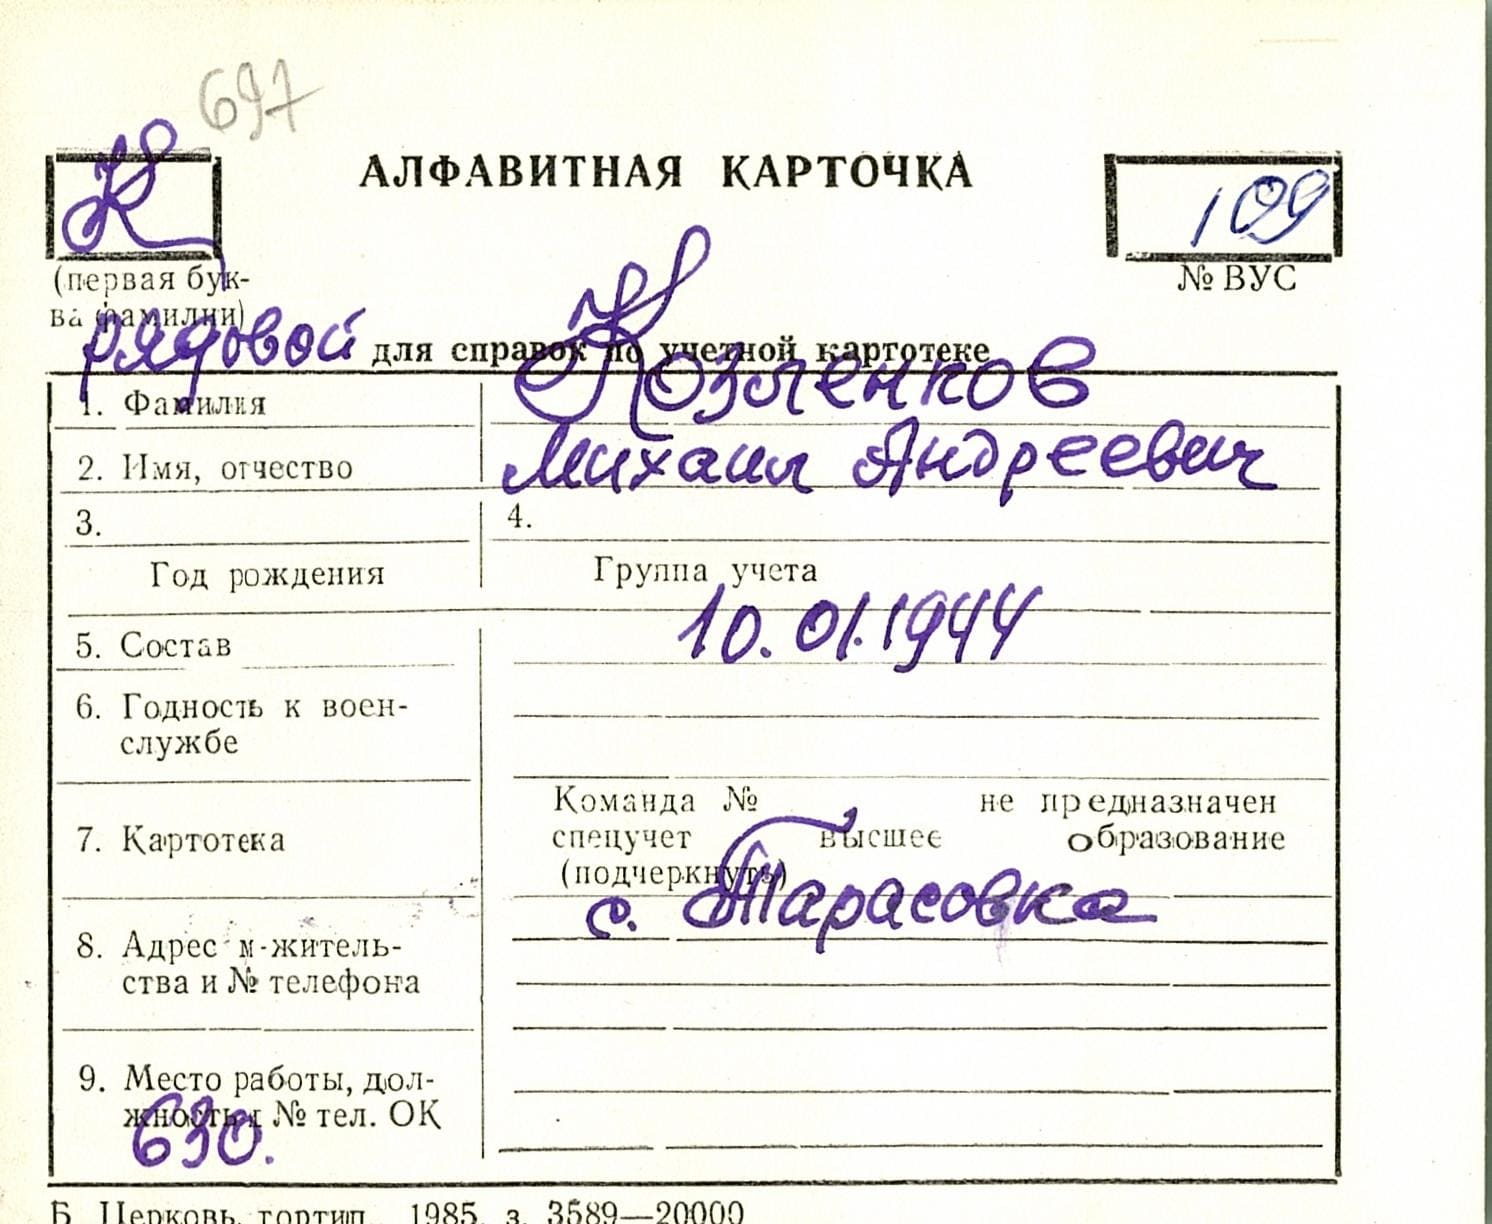 697
К
АЛФАВИТНАЯ КАРТОЧКА
109
(первая бук-
ва фамилии)
№ ВУС
рядовой
для справок по учетной картотеке
1. Фамилия Козленков
2. Имя, отчество Михаил Андреевич
3. 4.
Год рождения Группа учета
10.01.1944
5. Состав
6. Годность к воен-
службе
Команда № не предназначен
7. Картотека спецучет высшее образование
(подчеркнуть)
с. Тарасовка
8. Адрес м-житель-
ства и № телефона
9. Место работы, дол-
жность и № тел. ОК
630.
Б. Церковь, гортип., 1985, з. 3589—20000